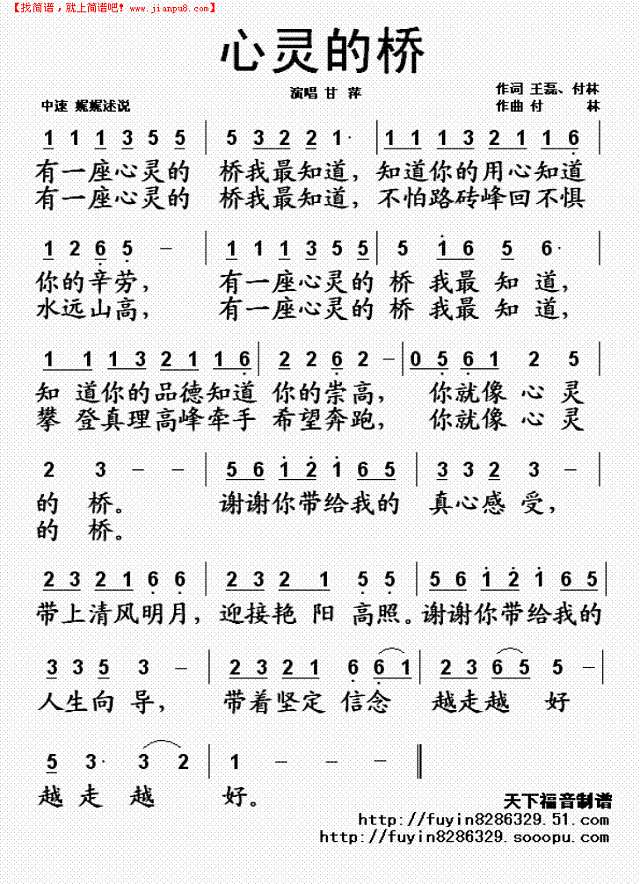 【找简谱，就上简谱吧! www.jianpu8.com】
心灵的桥
演唱 甘 萍
作词 王磊、付林
中速 娓娓述说
作曲 付 林
1 1 1 3 5 5 | 5 3 2 2 1· | 1 1 1 3 2 1 1 6
有一座心灵的 桥我最知道，知道你的用心知道
有一座心灵的 桥我最知道，不怕路砖峰回不惧
1 2 6 5 － | 1 1 1 3 5 5 | 5 1 6 5 6·
你的辛劳， 有一座心灵的 桥 我最 知 道，
水远山高， 有一座心灵的 桥 我最 知 道，
1 1 1 3 2 1 1 6 | 2 2 6 2 － | 0 5 6 1 2 5
知 道你的品德知道 你的崇高， 你就像 心 灵
攀 登真理高峰牵手 希望奔跑， 你就像 心 灵
2 3 － － | 5 6 1 2 1 6 5 | 3 3 2 3 －
的 桥。 谢谢你带给我的 真心感 受，
的 桥。
2 3 2 1 6 6 | 2 3 2 1 5 5 | 5 6 1 2 1 6 5
带上清风明月，迎接艳 阳 高照。谢谢你带给我的
3 3 5 3 － | 2 3 2 1 6 6 1 | 2 3 6 5 5 －
人生向 导， 带着坚定 信念 越走越 好
5 3· 3 2 | 1 －
越 走 越 好。
天下福音制谱
http://fuyin8286329.51.com
http://fuyin8286329.sooopu.com